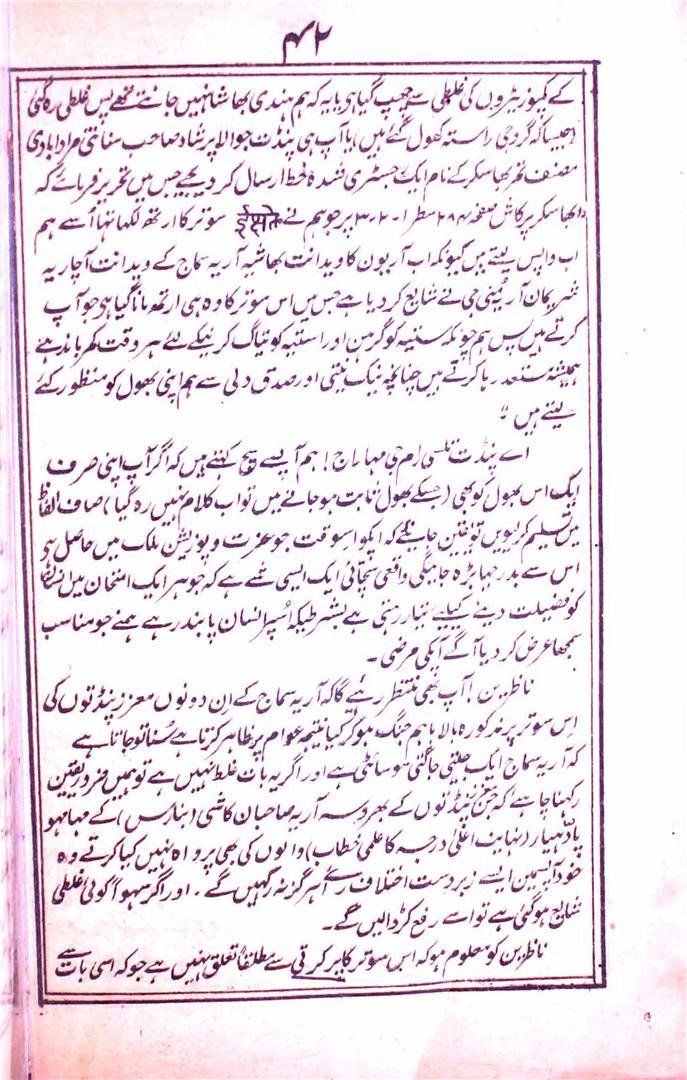 ۴۲
کے کمپوزیٹروں کی غلطی سے چھپ گیا ہی یا یہ کہ ہم ہندی بھاشا نہیں جانتے تھے پس غلطی رہ گئی
(جیسا کہ گروجی راستہ کھول گئے ہیں) یا آپ ہی پنڈت جوالا پرشاد صاحب سناتنی مراد آبادی
مصنف تمر بھاسکر کے نام ایک رجسٹری شدہ خط ارسال کر دیجیے جس میں تحریر فرمائے کہ
بھاسکر پرکاش صفحہ ۲۸۴ سطر ۱-۲-۳ پر جو ہم نے ईक्षते سوتر کا ارتھ لکھا تھا اُسے ہم
اب واپس لیتے ہیں کیونکہ اب آریوں کا ویدانت بھاشیہ آریہ سماج کے ویدانت آچاریہ
شریمان آریہ مُنی جی نے شایع کر دیا ہے جس میں اس سوتر کا وہ ہی ارتھ مانا گیا ہی جو آپ
کرتے ہیں پس ہم چونکہ ستیہ کو گرہن اور استیہ کو تیاگ کرنیکے لئے ہر وقت کمر باندھے
ہمیشہ مستعد رہا کرتے ہیں چنانچہ نیک نیتی اور صدق دلی سے ہم اپنی بھول کو منظور کئے
لیتے ہیں "
اے پنڈت تلسی رام جی مہاراج! ہم آپسے سچ کہتے ہیں کہ اگر آپ اپنی صرف
ایک اس بھول کو بھی (جسکے بھول ثابت ہو جانے میں تو اب کلام نہیں رہ گیا) صاف الفاظ
میں تسلیم کر لیویں تو یقین جانئے کہ آپکو اسوقت جو عزت و پوزیشن ملک میں حاصل ہی
اس سے بدرجہا بڑہ جاویگی واقعی سچائی ایک ایسی شے ہے کہ جو ہر ایک امتحان میں انسان
کو فضیلت دینے کیلیے تیار رہتی ہے بشرطیکہ اُسپر انسان پابند رہے ہمنے جو مناسب
سمجھا عرض کر دیا آگے آپکی مرضی ۔
ناظرین! آپ بھی منتظر رہئے گا کہ آریہ سماج کے ان دونوں معزز پنڈتوں کی
اس سوتر پر مذکورہ بالا باہم جنگ ہو کر کیا نتیجہ عوام پر ظاہر کرتا ہے سُنا تو جاتا ہے
کہ آریہ سماج ایک جیتی جاگتی سوسائٹی ہے اور اگر یہ بات غلط نہیں ہے تو ہمیں ضرور یقین
رکھنا چاہے کہ جن پنڈتوں کے بھروسہ آریہ صاحبان کاشی (بنارس) کے مہامہو
پادھیار (نہایت اعلیٰ درجہ کا علمی خطاب) والوں کی بھی پرواہ نہیں کیا کرتے وہ
خود آپسمیں ایسے زبردست اختلاف رائے ہرگز نہ رکہیں گے ۔ اور اگر سہواً کوئی غلطی
شایع ہو گئی ہے تو اسے رفع کر ڈالیں گے ۔
ناظرین کو معلوم ہو کہ اس سوتر کا پرکرتی سے مطلقاً تعلق نہیں ہے جو کہ اسی بات سے